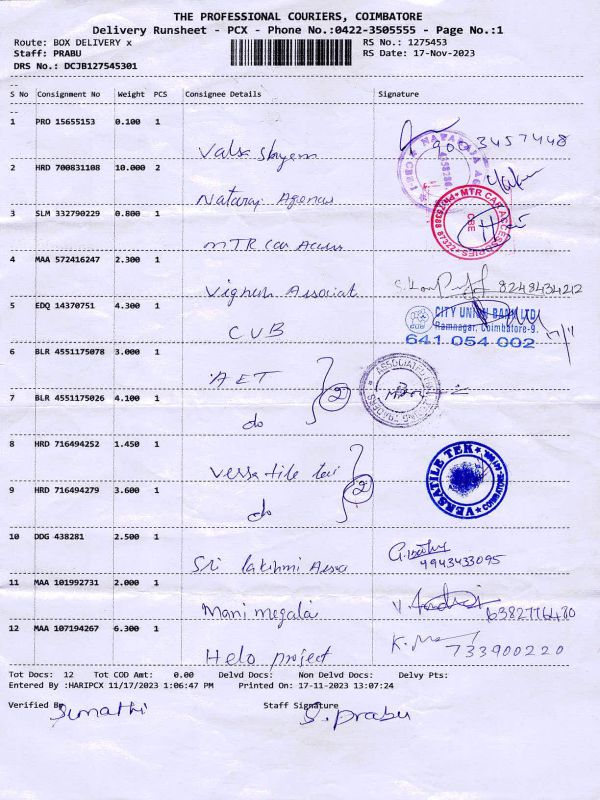 THE PROFESSIONAL COURIERS, COIMBATORE
Delivery Runsheet - PCX - Phone No.:0422-3505555 - Page No.:1
Route: BOX DELIVERY x RS No.: 1275453
Staff: PRABU RS Date: 17-Nov-2023
DRS No.: DCJB127545301
S No Consignment No Weight PCS Consignee Details Signature
1 PRO 15655153 0.100 1
2 HRD 700831108 10.000 2
Nataraj Agencies
3 SLM 332790229 0.800 1
MTR Car Access
MTR CAR ACCESSORIES CBE
4 MAA 572416247 2.300 1
Vignesh Associat 8248434212
5 EDQ 14370751 4.300 1
CUB
CITY UNION BANK LTD
Ramnagar, Coimbatore-9.
641 054 002
6 BLR 4551175078 3.000 1
AET 2
7 BLR 4551175026 4.100 1
do
8 HRD 716494252 1.450 1
Versatile
VERSATILE TEK COIMBATORE
9 HRD 716494279 3.600 1
do 2
10 DDG 438281 2.500 1
Sri Lakshmi Asso 4943433095
11 MAA 101992731 2.000 1
Manimegalai
12 MAA 107194267 6.300 1
Helo project 733900220
Tot Docs: 12 Tot COD Amt: 0.00 Delvd Docs: Non Delvd Docs: Delvy Pts:
Entered By :HARIPCX 11/17/2023 1:06:47 PM Printed On: 17-11-2023 13:07:24
Verified By Staff Signature
Sumathi S. prabu